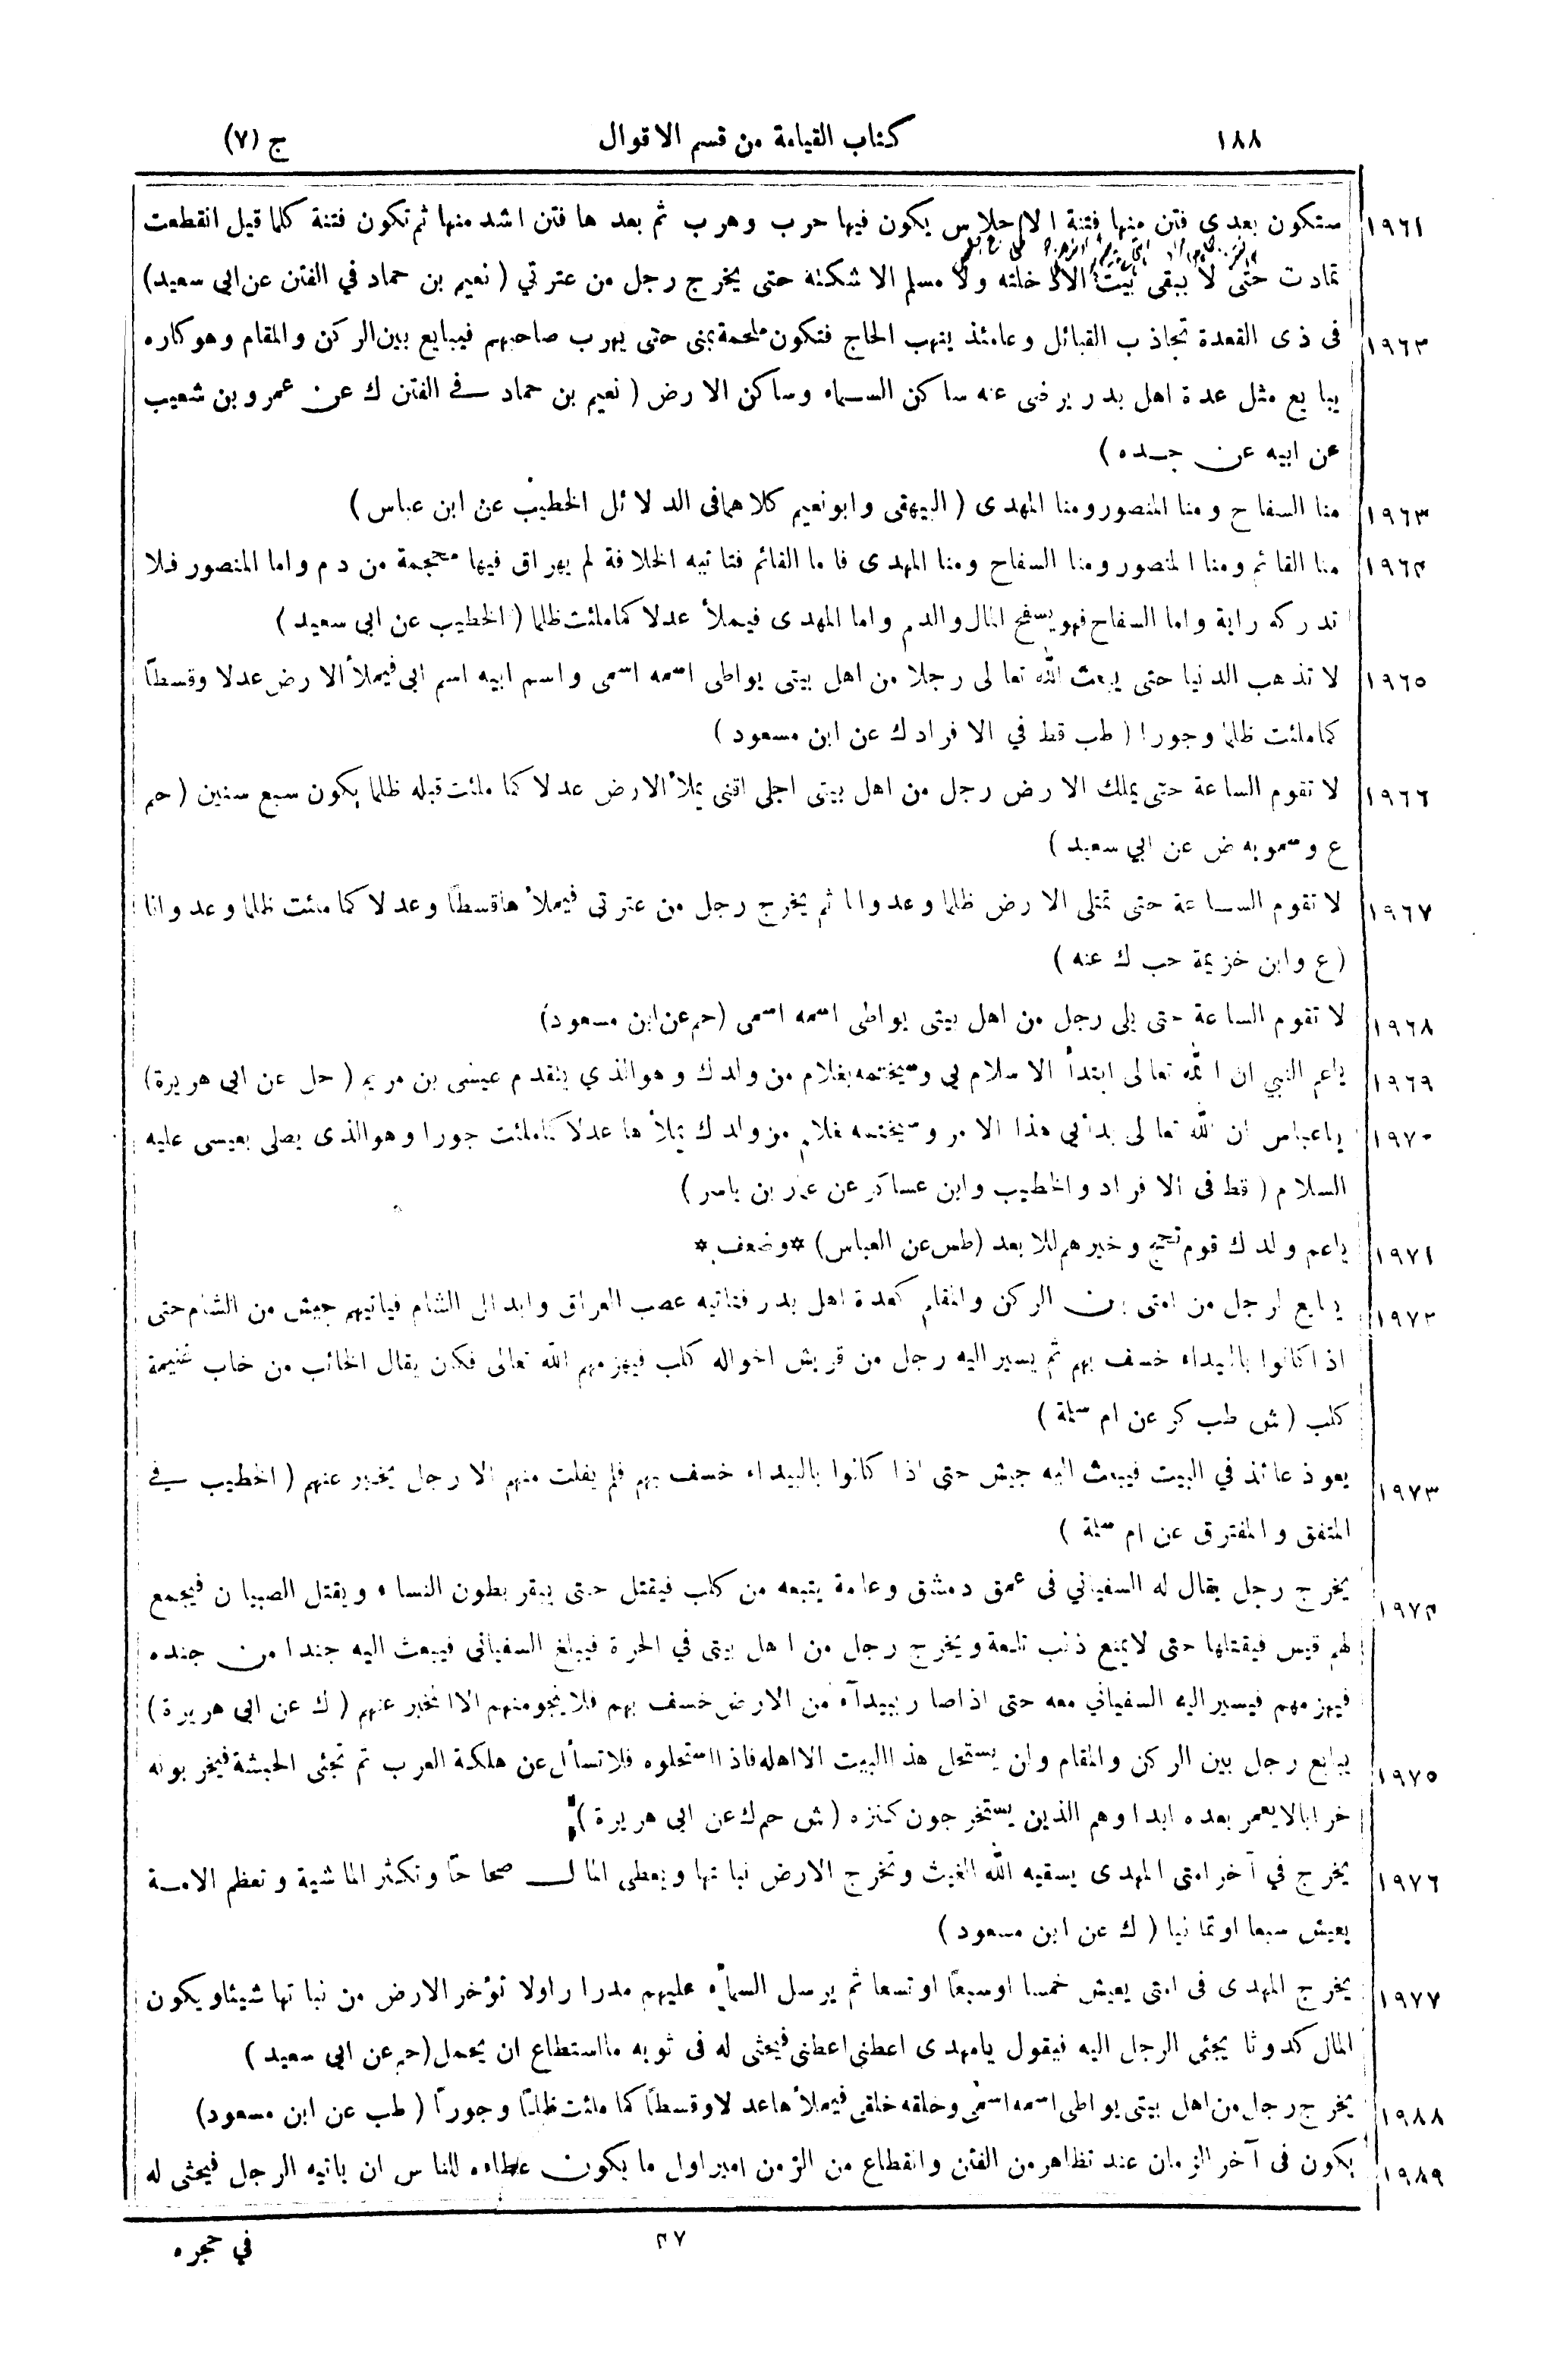 ١٨٨ كتاب القيامة من قسم الاقوال ج (٧)
١٩٦١ ستكون بعدى فتن منها فتنة الاحلاس يكون فيها حرب وهرب ثم بعدها فتن اشد منها ثم تكون فتنة كلما قيل انقطعت
تمادت حتى لا يبقى بيت الا دخلته ولا مسلم الا شكته حتى يخرج رجل من عترتي ( نعيم بن حماد في الفتن عن ابي سعيد)
١٩٦٣ فى ذى القعدة تجاذب القبائل وعامئذ ينهب الحاج فتكون ملحمة بمنى حتى يهرب صاحبهم فيبايع بين الركن والمقام وهو كاره
يبايع مثل عدة اهل بدر يرضى عنه ساكن السماء وساكن الارض ( نعيم بن حماد في الفتن ك عن عمرو بن شعيب
عن ابيه عن جده )
١٩٦٣ منا السفاح ومنا المنصور ومنا المهدى ( البيهقى وابو نعيم كلاهما فى الدلائل الخطيب عن ابن عباس )
١٩٦٤ منا القائم ومنا المنصور ومنا السفاح ومنا المهدى فاما القائم فتاتيه الخلافة لم يهراق فيها محجمة من دم واما المنصور فلا
تدركه راية واما السفاح فهو يسفح المال والدم واما المهدى فيملأ عدلا كما ملئت ظلما ( الخطيب عن ابى سعيد )
١٩٦٥ لا تذهب الدنيا حتى يبعث الله تعالى رجلا من اهل بيتى يواطى اسمه اسمى واسم ابيه اسم ابى فيملأ الارض عدلا وقسطًا
كما ملئت ظلما وجورا ( طب قط في الافراد ك عن ابن مسعود )
١٩٦٦ لا تقوم الساعة حتى يملك الارض رجل من اهل بيتى اجلى اقنى يملأ الارض عدلا كما ملئت قبله ظلما يكون سبع سنين ( حم
ع وسمويه ض عن ابي سعيد )
١٩٦٧ لا تقوم الساعة حتى تمتلى الارض ظلما وعدوانا ثم يخرج رجل من عترتى فيملأها قسطًا وعدلا كما ملئت ظلما وعدوانا
( ع وابن خزيمة حب ك عنه )
١٩٦٨ لا تقوم الساعة حتى يلى رجل من اهل بيتى يواطى اسمه اسمى (حم عن ابن مسعود)
١٩٦٩ ياعم النبي ان الله تعالى ابتدأ الاسلام بي وسيختمه بغلام من ولدك وهو الذي يتقدم عيسى بن مريم ( حل عن ابى هريرة)
١٩٧٠ ياعباس ان الله تعالى بدأ بي هذا الامر وسيختمه بغلام من ولدك يملأها عدلا كما ملئت جورا وهو الذى يصلى بعيسى عليه
السلام ( قط فى الافراد والخطيب وابن عساكر عن عمار بن ياسر )
١٩٧١ ياعم ولدك قوم تحج وخيرهم للابعد (طس عن العباس) *وضعف*
١٩٧٢ يبايع لرجل من امتى بين الركن والمقام كعدة اهل بدر فتاتيه عصب العراق وابدال الشام فياتيهم جيش من الشام حتى
اذا كانوا بالبيداء خسف بهم ثم يسير اليه رجل من قريش اخواله كلب فيهزمهم الله تعالى فكان يقال الخائب من خاب غنيمة
كلب ( ش طب كر عن ام سلمة )
١٩٧٣ يعوذ عائذ في البيت فيبعث اليه جيش حتى اذا كانوا بالبيداء خسف بهم فلم يفلت منهم الا رجل يخبر عنهم ( الخطيب في
المتفق والمفترق عن ام سلمة )
١٩٧٤ يخرج رجل يقال له السفياني فى عمق دمشق وعامة يتبعه من كلب فيقتل حتى يبقر بطون النساء ويقتل الصبيان فيجمع
لهم قيس فيقتلها حتى لا يمنع ذنب تلعة ويخرج رجل من اهل بيتى في الحرة فيبلغ السفياني فيبعث اليه جندا من جنده
فيهزمهم فيسير اليه السفياني معه حتى اذا صار ببيداء من الارض خسف بهم فلا ينجو منهم الا المخبر عنهم ( ك عن ابى هريرة )
١٩٧٥ يبايع رجل بين الركن والمقام ولن يستحل هذا البيت الا اهله فاذا استحلوه فلا تسأل عن هلكة العرب ثم تجئى الحبشة فيخربونه
خرابا لا يعمر بعده ابدا وهم الذين يستخرجون كنزه ( ش حم ك عن ابى هريرة )
١٩٧٦ يخرج في آخر امتى المهدى يسقيه الله الغيث وتخرج الارض نباتها ويعطى المال صحاحًا وتكثر الماشية وتعظم الامة
يعيش سبعا او ثمانيا ( ك عن ابن مسعود )
١٩٧٧ يخرج المهدى فى امتى يعيش خمسا او سبعًا او تسعا ثم يرسل السماء عليهم مدرارا ولا تؤخر الارض من نباتها شيئا ويكون
المال كدوثا يجئى الرجل اليه فيقول يامهدى اعطنى اعطنى فيحثى له فى ثوبه ما استطاع ان يحمل (حم عن ابي سعيد )
١٩٨٨ يخرج رجل من اهل بيتى يواطى اسمه اسمى وخلقه خلقى فيملأها عدلا وقسطًا كما ملئت ظلمًا وجورًا ( طب عن ابن مسعود)
١٩٨٩ يكون فى آخر الزمان عند تظاهر من الفتن وانقطاع من الزمن امير اول ما يكون عطاءه للناس ان ياتيه الرجل فيحثى له
٤٧ في حجره